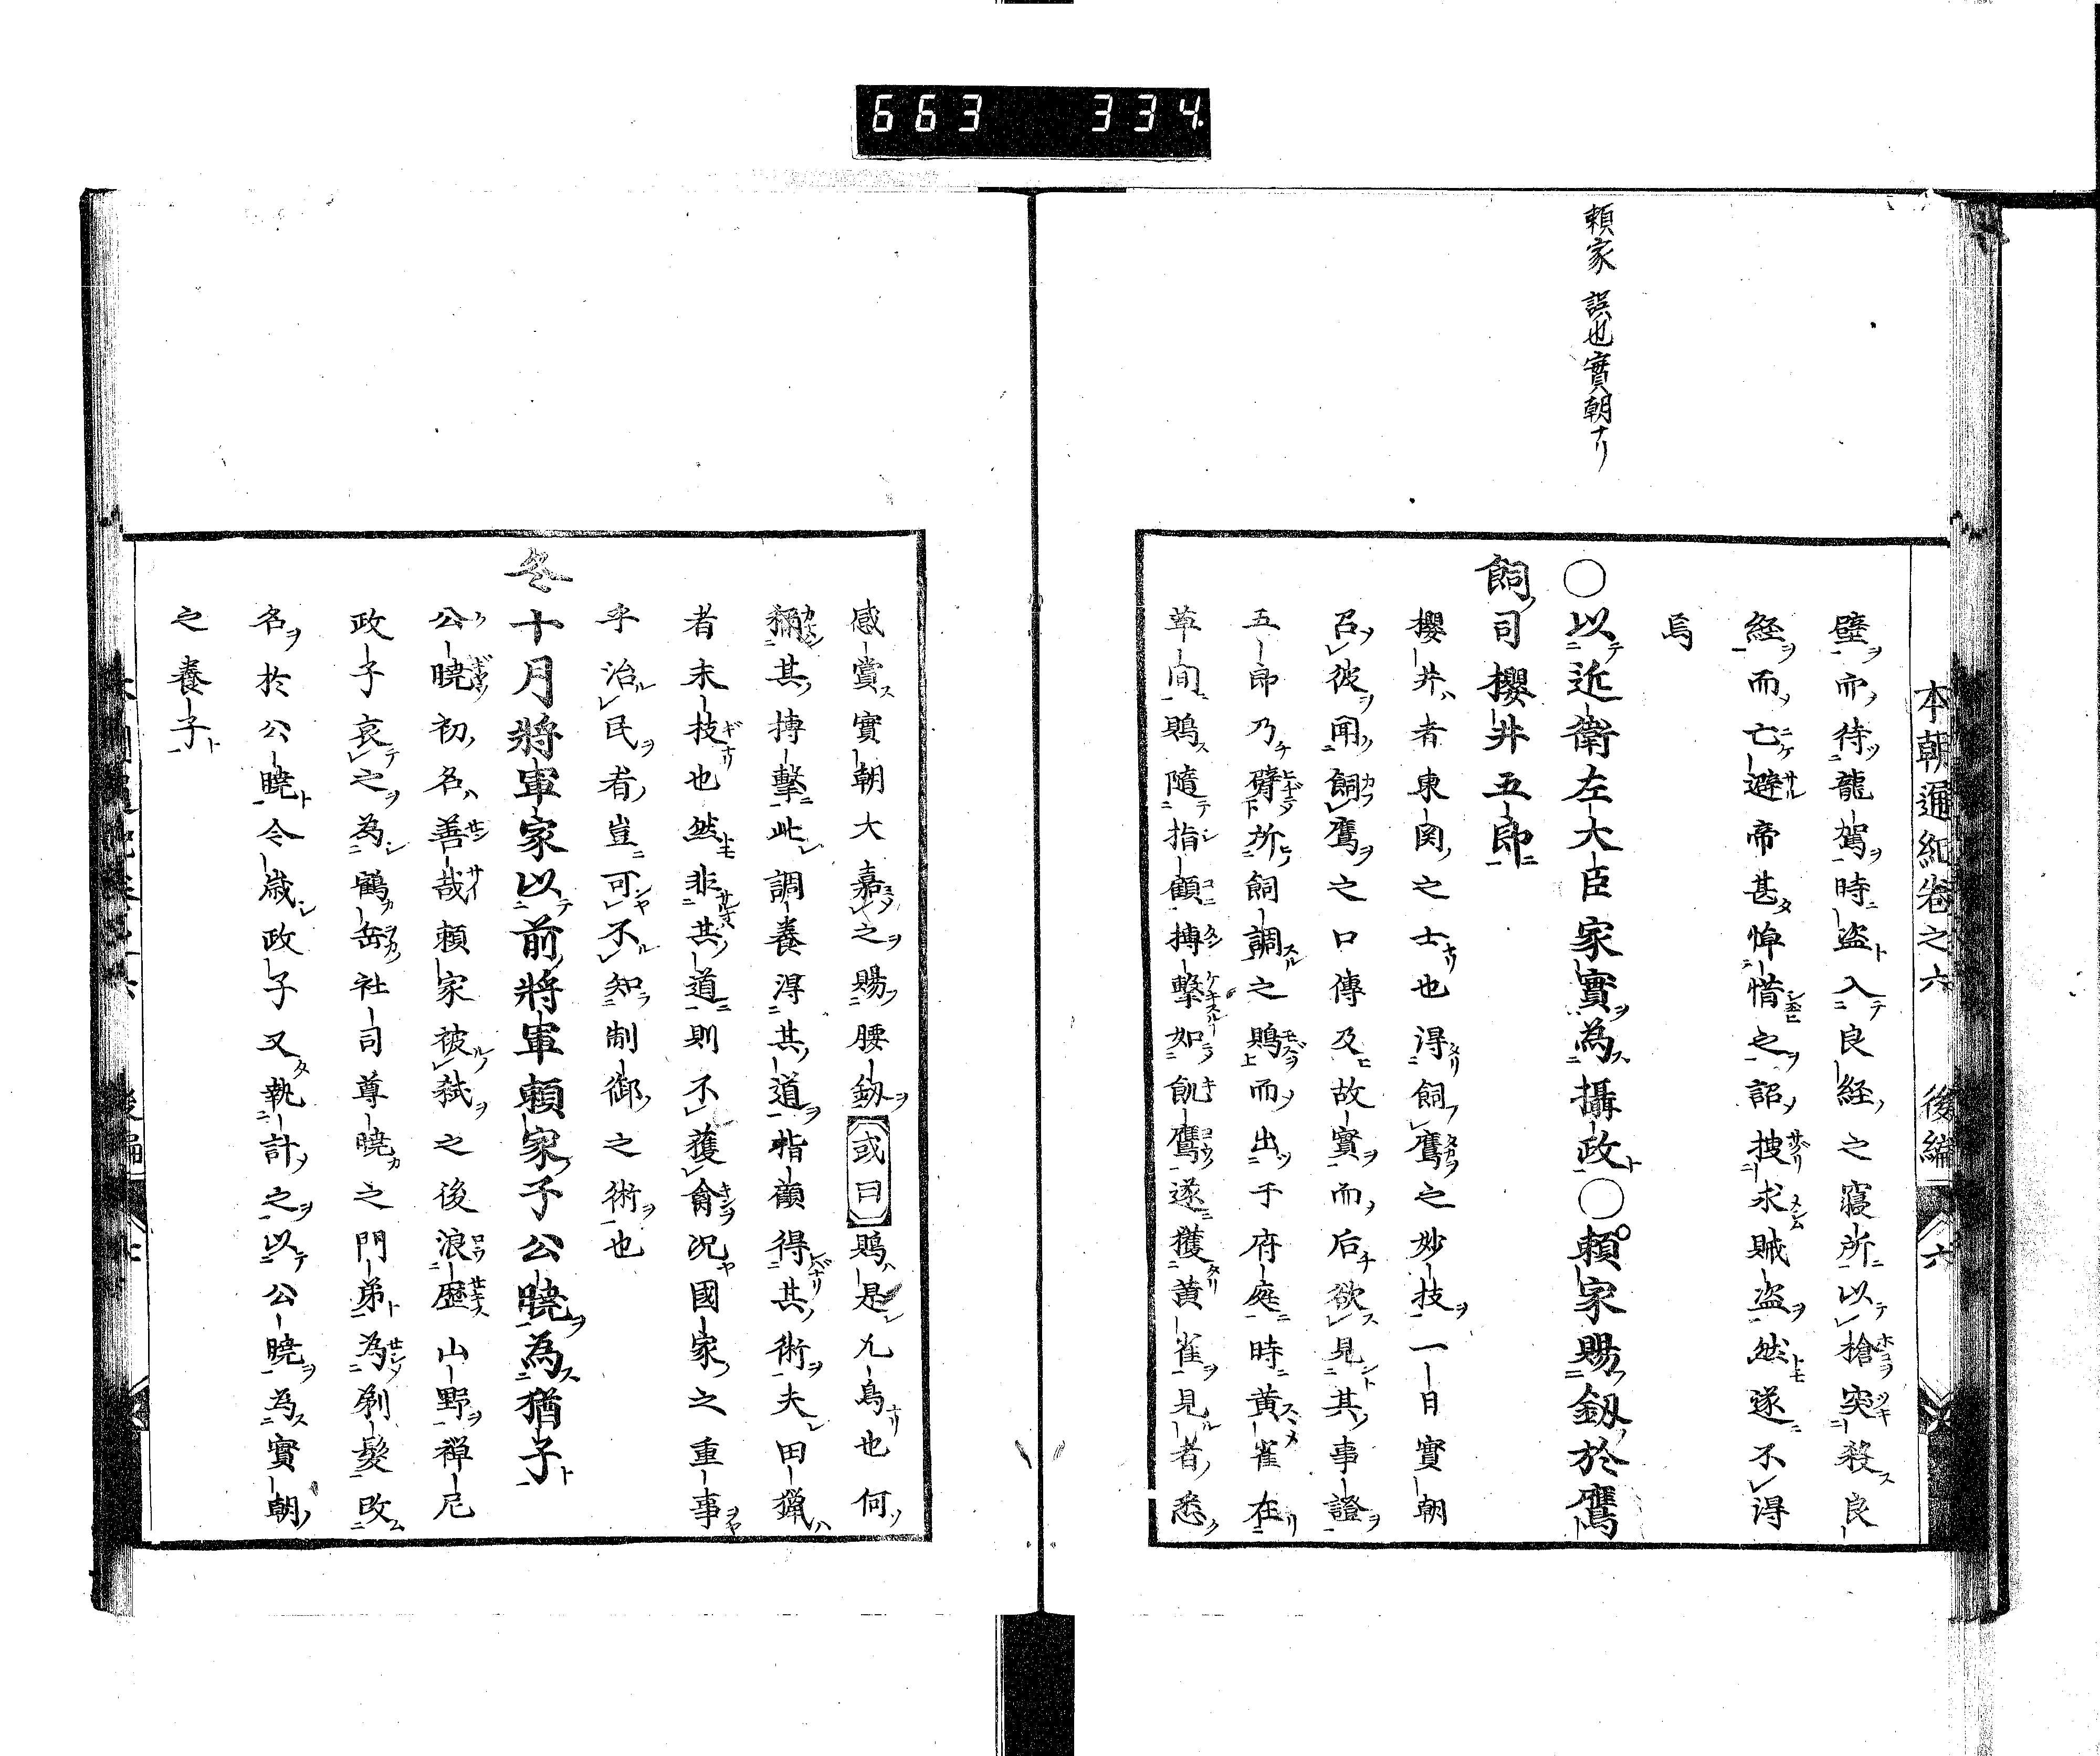 663 334
頼家 誤也實朝ナリ
本朝通紀卷之六 後編 六
壁而待龍駕時盜入良経之寢所以槍突殺良
経而亡避帝甚悼惜之詔捜求賊盗然遂不得
焉
○以近衛左大臣家實為攝政○頼家賜釼於鷹
飼司櫻井五郎
櫻井者東関之士也得飼鷹之妙技一日實朝
召彼聞飼鷹之口傳及故實而后欲見其事證
五郎乃臂所飼調之鵙而出于府庭時黄雀在
草間鵙隨指顧搏擊如飢鷹遂獲黄雀見者悉
感賞實朝大嘉之賜腰釼或曰鵙是凡鳥也何
稱其搏擊此調養得其道指顧得其術夫田獵
者末技也然非其道則不獲禽况國家之重事
乎治民者豈可不知制御之術也
冬十月將軍家以前將軍頼家子公曉為猶子
公曉初名善哉頼家被弑之後浪歴山野禅尼
政子哀之為鶴岳社司尊曉之門弟為剃髮改
名於公曉今歳政子又執計之以公曉為實朝
之養子